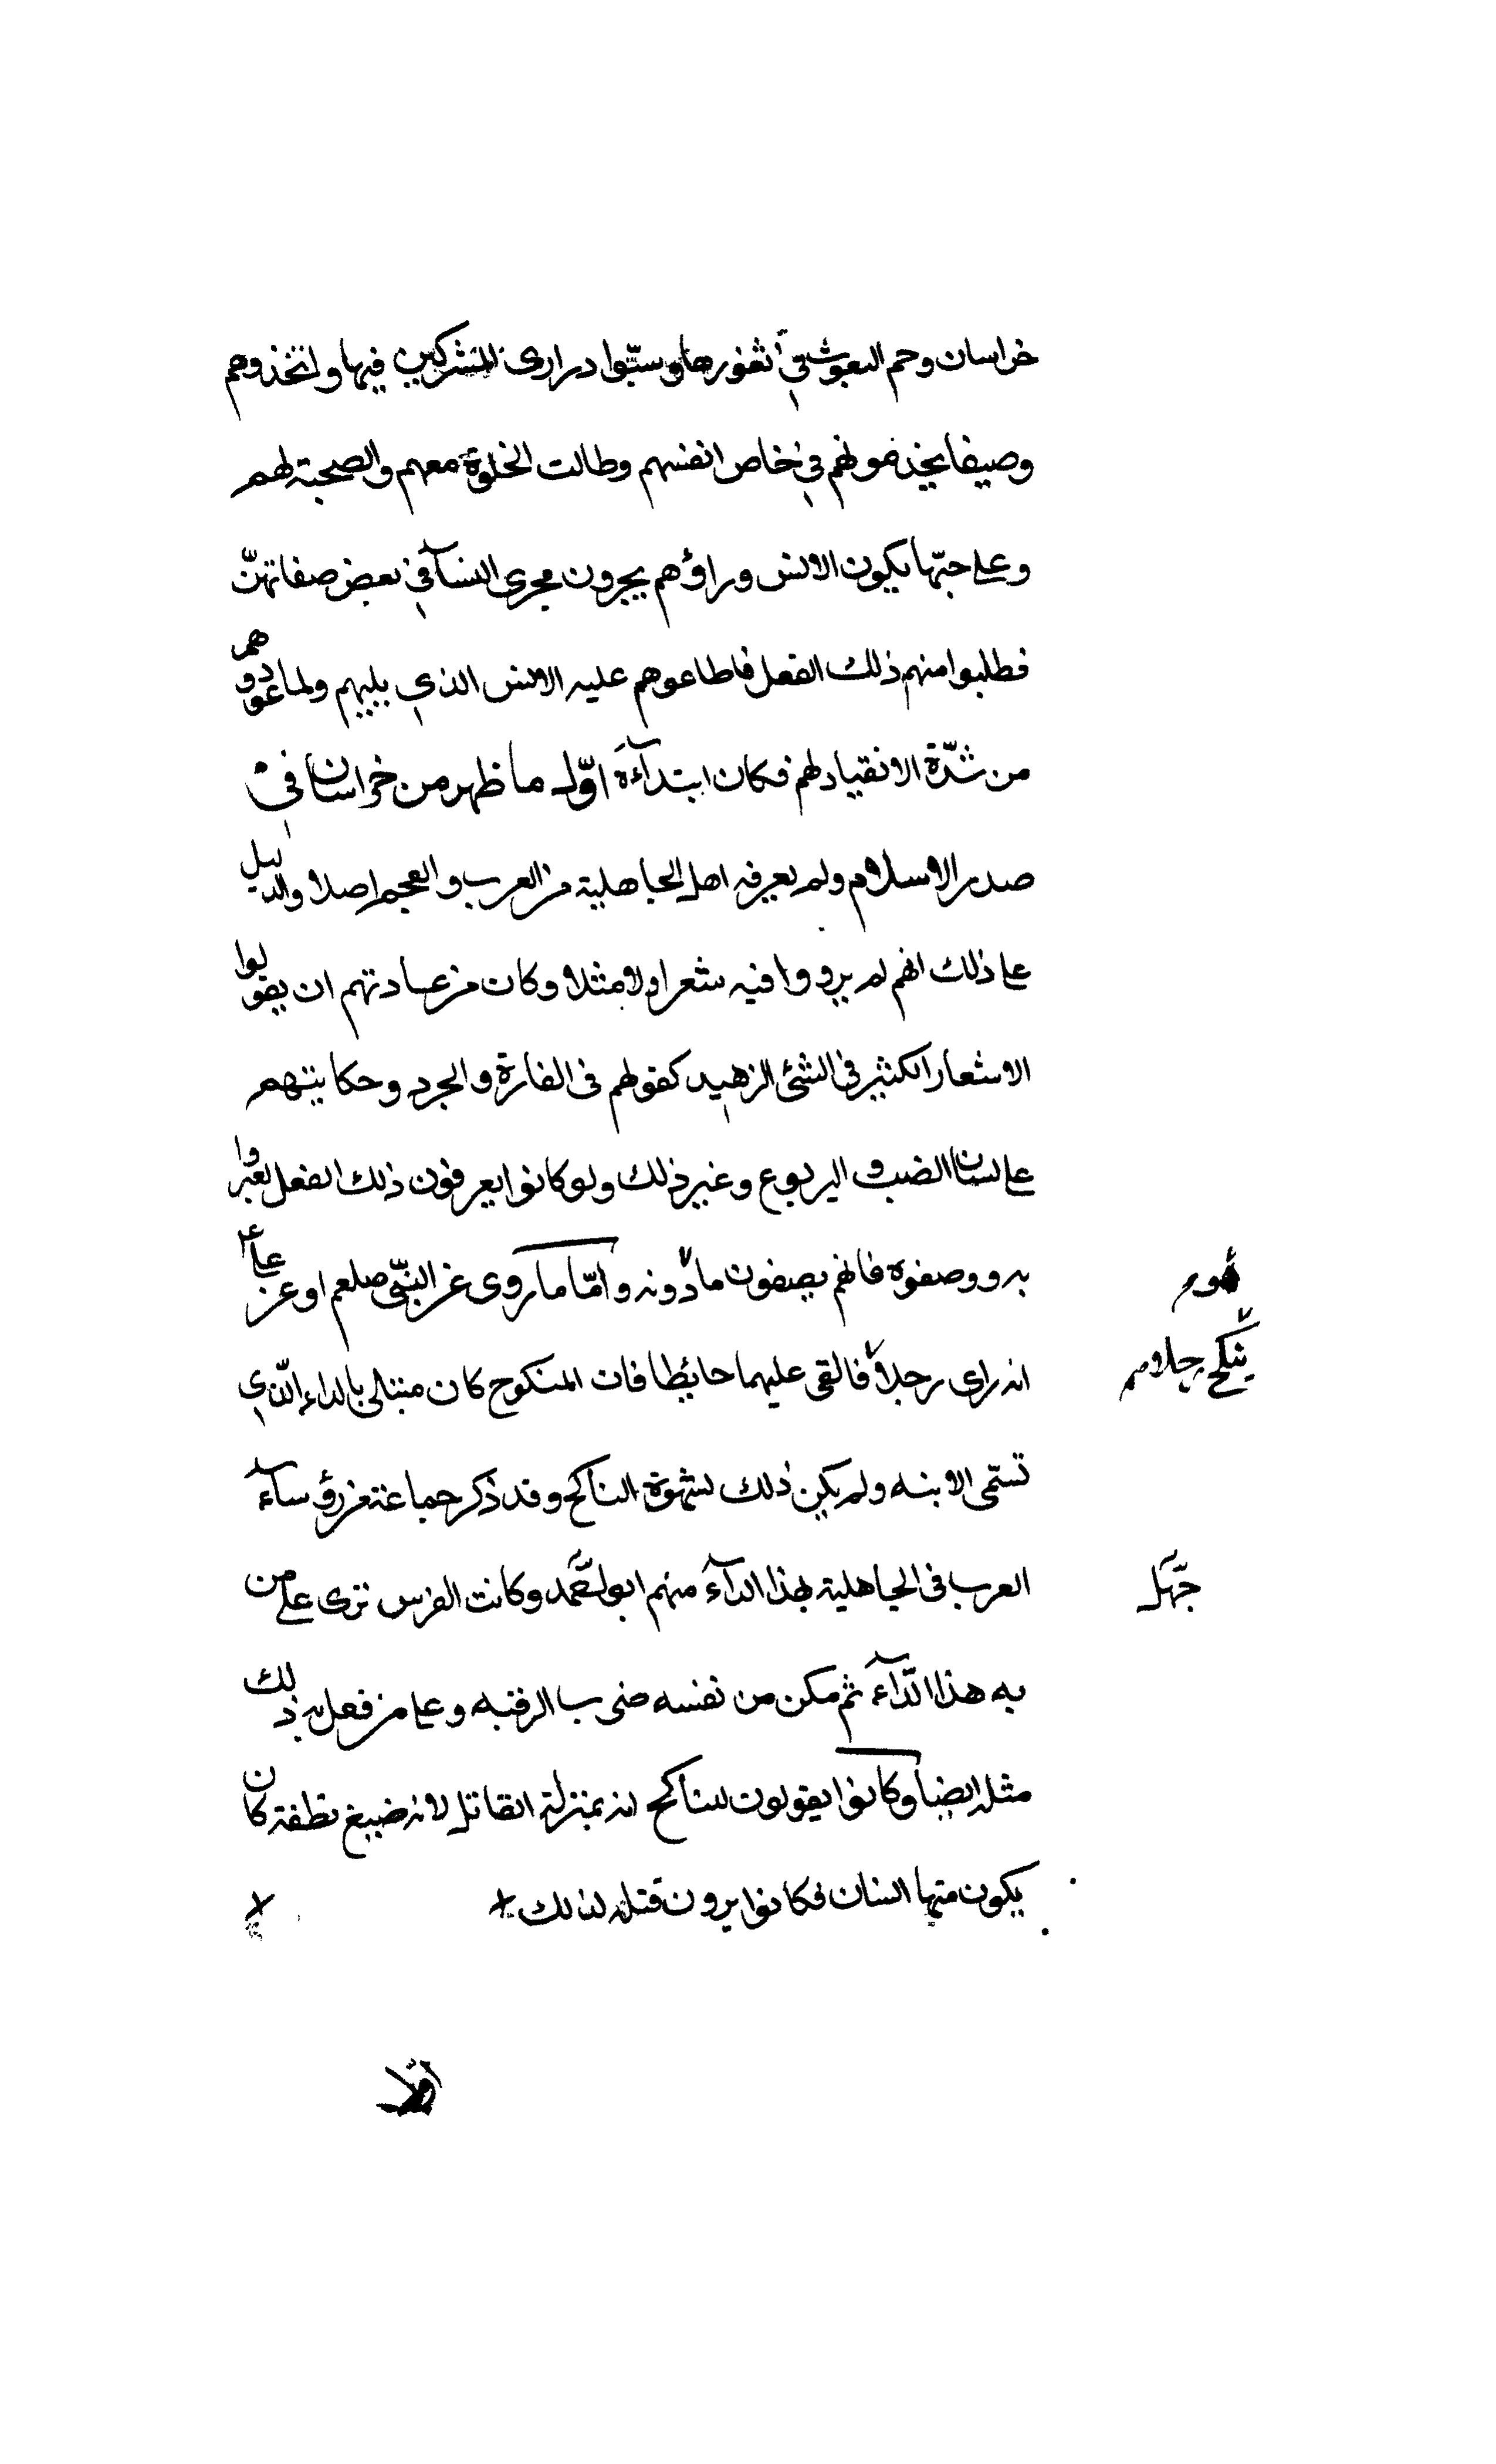 خراسان وحم البعوث في ثغورها وسبّوا دراري المشركين فيها واتخذوهم
وصيفا يخدمونهم في خاص انفسهم وطالت الخلوة معهم والصحبة لهم
وعلى حبّها يكون الانس وراؤهم يجرون مجرى النسآ في بعض صفاتهنّ
فطلبوا منهم ذلك الفعل فاطاعوهم عليه الانس الذي يليهم ولما عودوهم
من شدّة الانقياد لهم فكان ابتدآءة اوّل ما ظهر من خراسان في
صدر الاسلام ولم يعرفه اهل الجاهلية من العرب والعجم اصلا والدليل
على ذلك انهم لم يرووا فيه شعرا ولا مثلا وكان من عادتهم ان يقولوا
الاشعار الكثير في الشئ الزهيد كقولهم في الفارة والجرد وحكايتهم
على لسان الضب و اليربوع وغير ذلك ولو كانوا يعرفون ذلك الفعل لعبروا
به ووصفوه فانهم يصفون ما دونه وامّا ما روي عن النبّي صلعم او عن علي
انه راى رجلا فالقى عليهما حائطا فان المنكوح كان مبتلى بالداء الذي
ينكح رجلا
تسمّى الابنه ولم يكن ذلك لشهوة الناكح وقد ذكر جماعة من رؤسآء
العرب في الجاهلية بهذا الدآء منهم ابو وكانت الفرس ترى على من
جهل
به هذا الدآء ثم مكن من نفسه ضرب الرقبه وعلى من فعل به ذلك
مثله ايضا وكانوا يقولون للناكح انه بمنزلة القاتل لانه ضيع نطفة كان
يكون منها انسان فكانوا يرون قتله لذلك